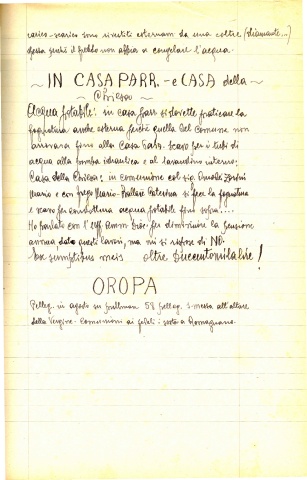 carico-scarico sono rivestiti esternam. da una coltre (diamante...)
spessa perchè il freddo non abbia a congelare l'acqua.
~ IN CASA PARR. - e CASA della ~
~ Chiesa ~
Acqua potabile: in casa parr. si dovette praticare la
fognatura anche esterna perchè quella del Comune non
arrivava fino alla Casa parr. scavo per i tubi di
acqua alla pompa idraulica e al lavandino interno;
Casa della Chiesa: in comunione col sig.
Mario e con Mario si fece la fognatura
e scavo per conduttura acqua potabile fino sopra....
Ho parlato con l' per diminuire la pensione
annua dati questi lavori, ma mi si rispose di NO.
sumptibus meis oltre Duecentomila lire!
OROPA
Pelleg. in agosto su pullman 58 pelleg. S. messa all'altare
della Vergine - Comunioni ai fedeli: sosta a Romagnano.